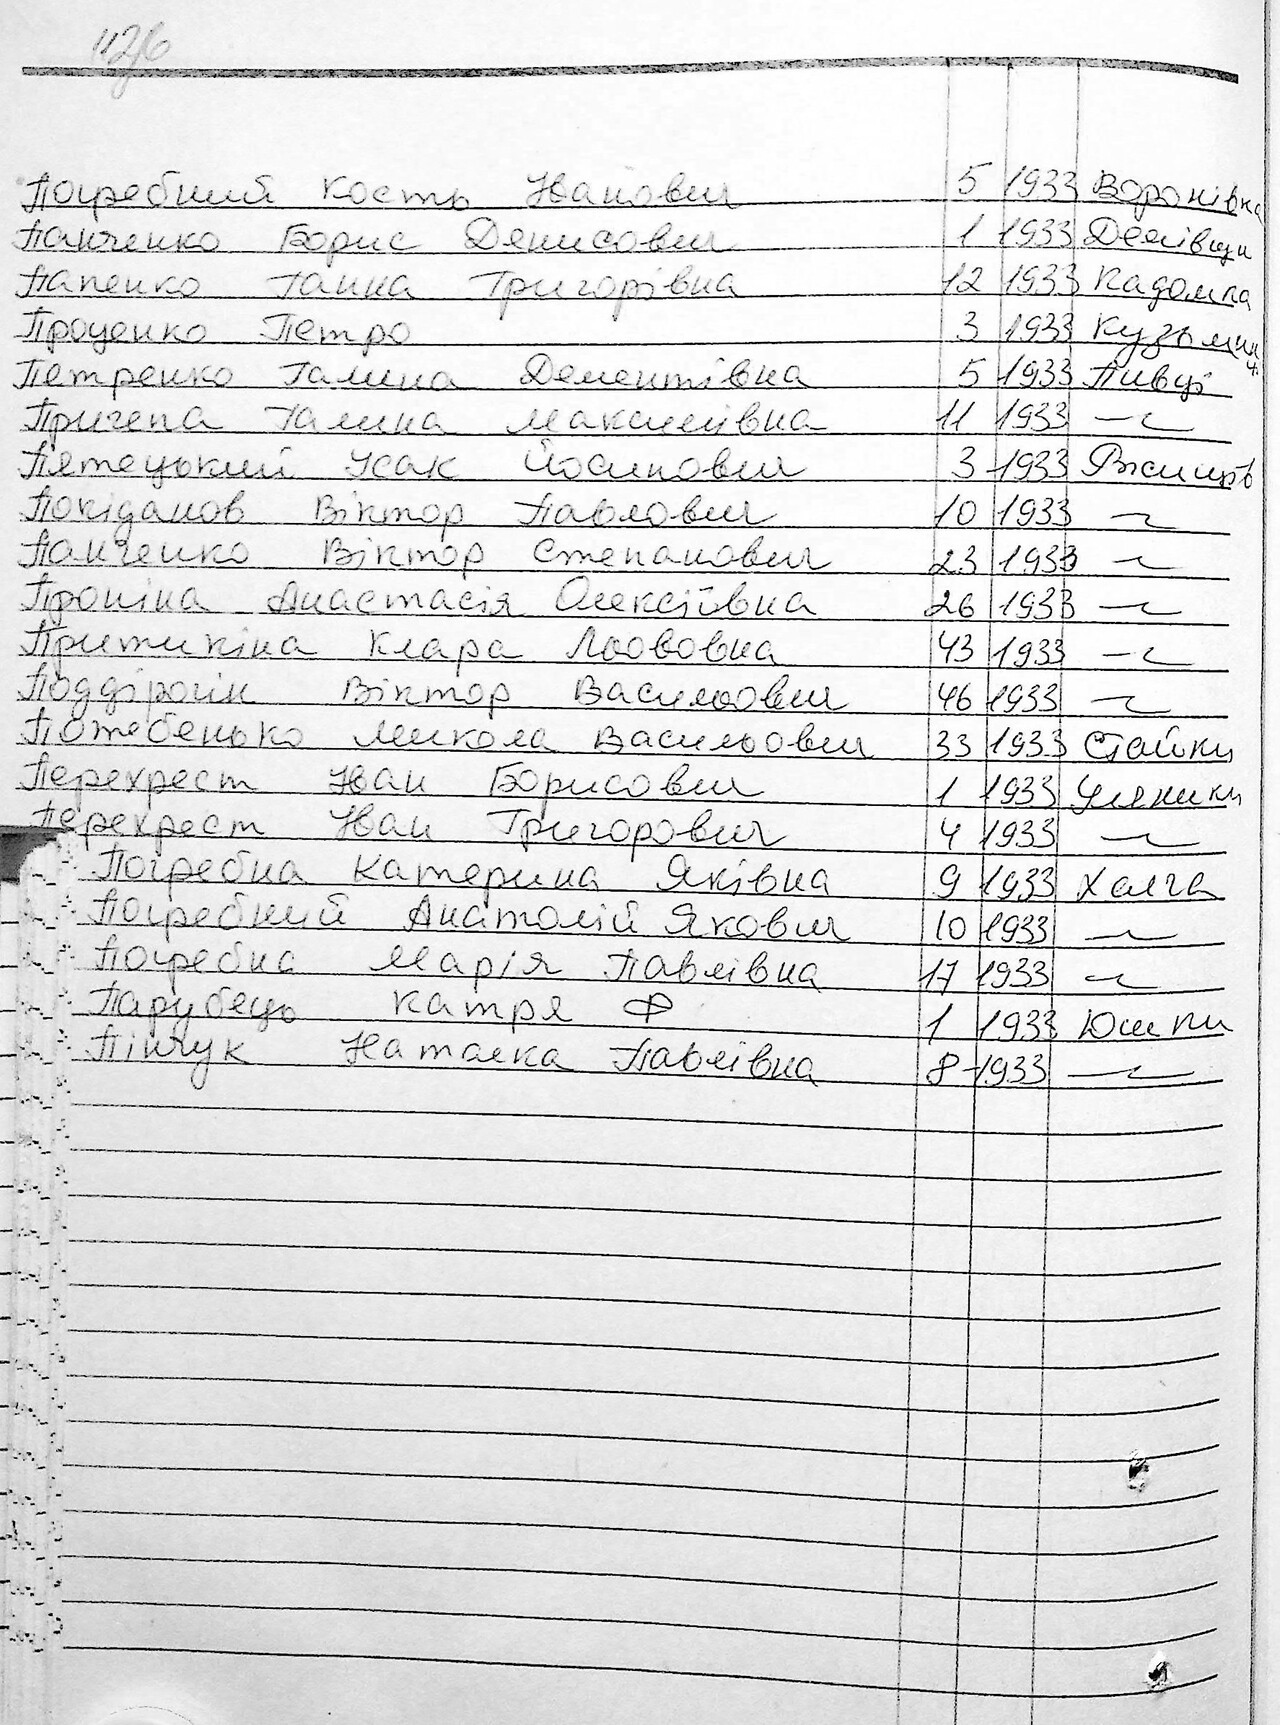 126
Погребний Кость Іванович 5 1933 Воронівка
Панченко Борис Денисович 1 1933 Деківщи
Папенко Ганна Григорівна 12 1933 Кадомка
Проценко Петро 3 1933 Кузьмин
Петренко Галина Дементівна 5 1933 Пивці
Причепа Галина Максимівна 11 1933 —"—
Пятецький Ісак Йосипович 3 1933 Ржищів
Покіданов Віктор Павлович 10 1933 —"—
Панченко Віктор Степанович 23 1933 —"—
Проніна Анастасія Олексіївна 26 1933 —"—
Притикіна Клара Львовна 43 1933 —"—
Поддірогін Віктор Васильович 46 1933 —"—
Потебенько Микола Васильович 33 1933 Стайки
Перехрест Іван Борисович 1 1933 Уляники
Перехрест Іван Григорович 4 1933 —"—
Погребна Катерина Яківна 9 1933 Халча
Погребний Анатолій Якович 10 1933 —"—
Погребна Марія Павлівна 17 1933 —"—
Парубець Катря Ф 1 1933 Юшки
Пінчук Наталка Павлівна 8 1933 —"—